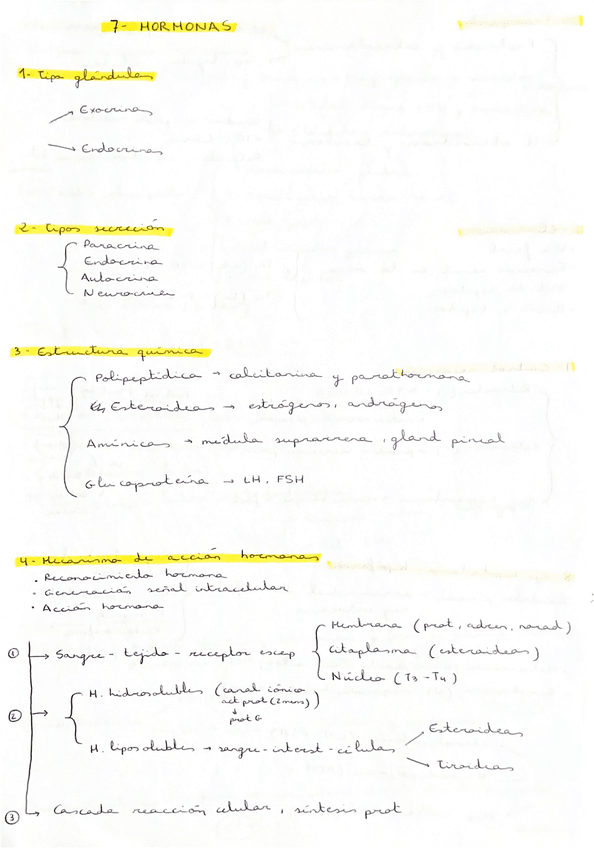 7- HORMONAS
1- Tipo glándulas
Exocrinas
Endocrinas
2- Tipos secreción
Paracrina
Endocrina
Autocrina
Neurocrina
3- Estructura química
Polipeptídica → calcitonina y parathormona
Esteroideas → estrógenos, andrógenos
Amínicas → médula suprarrena, gland pineal
Glucoproteína → LH, FSH
4- Mecanismo de acción hormonas
· Reconocimiento hormona
· Generación señal intracelular
· Acción hormona
① → Sangre - tejido - receptor escep
Membrana (prot, adren, norad)
Citoplasma (esteroideas)
Núcleo (T3-T4)
② → H. hidrosolubles (canal iónico
act prot (2 mens))
↓
prot G
H. liposolubles → sangre-interst-células
Esteroideas
Tiroideas
③ → Cascada reacción celular, síntesis prot